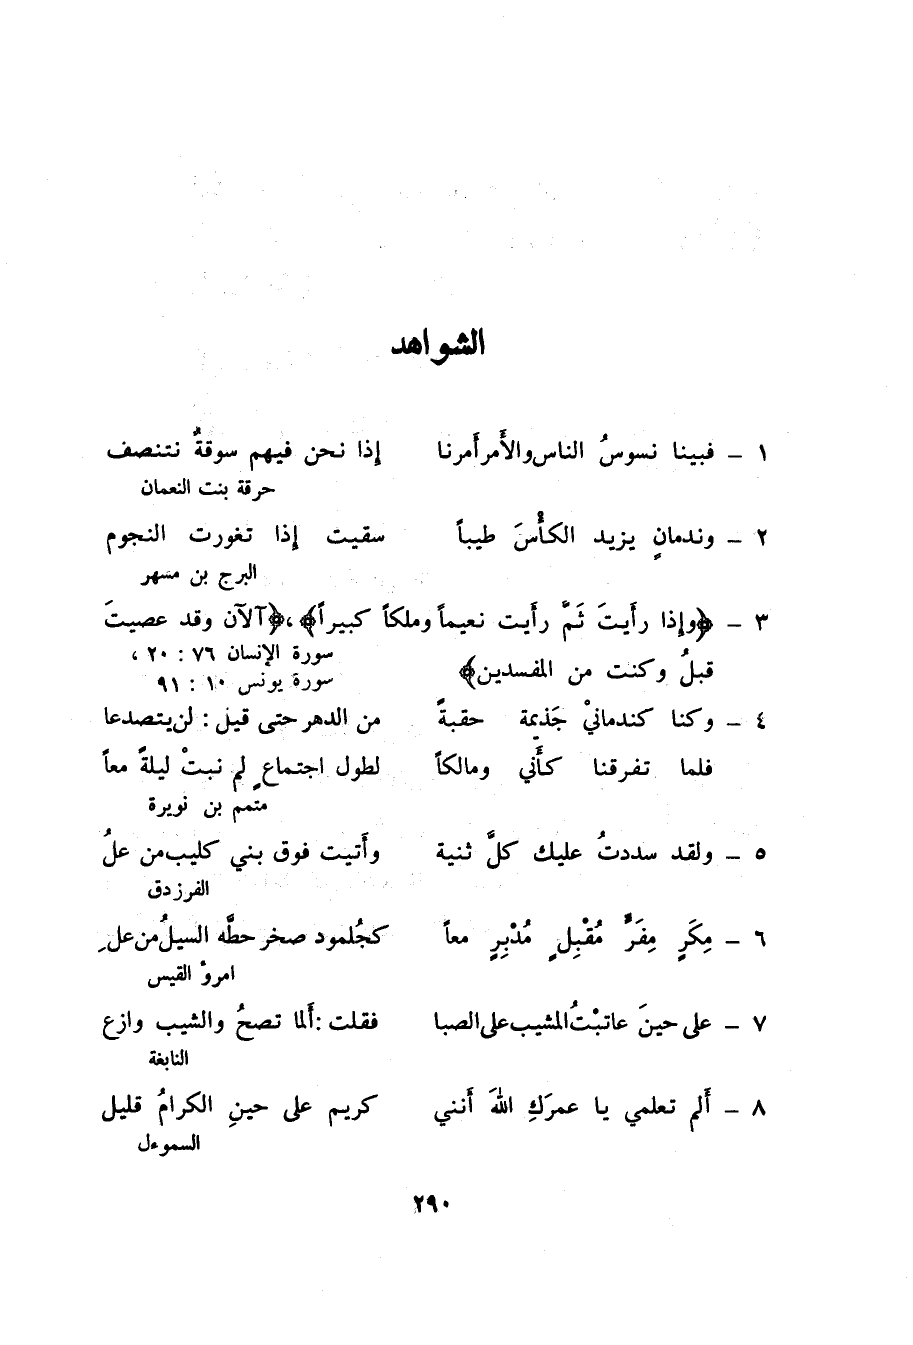 الشواهد
١ – فبينا نسوسُ الناس والأَمر أَمرنا إذا نحن فيهم سوقةٌ نتنصف
حرقة بنت النعمان
٢ – وندمانٍ يزيد الكأْسَ طيباً سقيت إذا تغورت النجوم
البرج بن مسهر
٣ – ﴿وإذا رأَيتَ ثَمَّ رأَيت نعيماً وملكاً كبيراً﴾، ﴿آلآن وقد عصيتَ
سورة الإنسان ٧٦ : ٢٠ ،
قبلُ وكنت من المفسدين﴾
سورة يونس ١٠ : ٩١
٤ – وكنا كندمانيْ جَذيمة حقبةً من الدهر حتى قيل : لن يتصدعا
فلما تفرقنا كأَني ومالكاً لطول اجتماعٍ لم نبتْ ليلةً معاً
متمم بن نويرة
٥ – ولقد سددتُ عليك كلَّ ثنية وأَتيت فوق بني كليب من علُ
الفرزدق
٦ – مِكَرٍ مِفَرٍّ مُقْبِلٍ مُدْبِرٍ معاً كجُلمود صخر حطَّه السيلُ من علِ
امروْ القيس
٧ – على حينَ عاتبْتُ المشيب على الصبا فقلت : أَلما تصحُ والشيب وازع
النابغة
٨ – أَلم تعلمي يا عمرَكِ اللهَ أَنني كريم على حينِ الكرامُ قليل
السموءل
٢٩٠